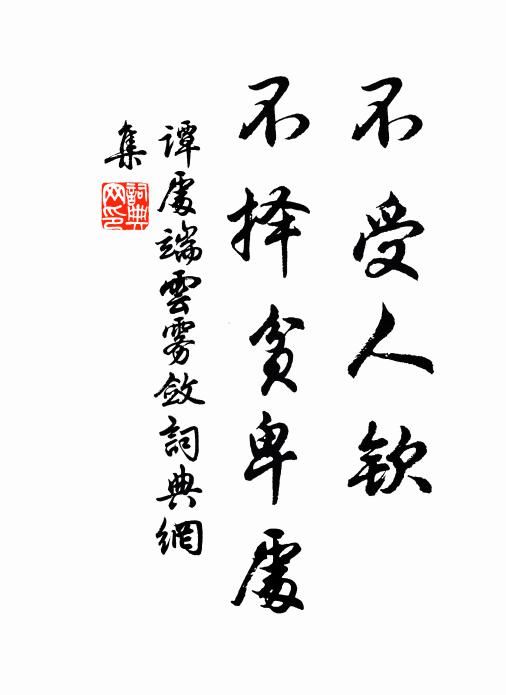 不受人欽
不择貧卑處
譚處端雲霧斂詞典網
集
詞典
网印